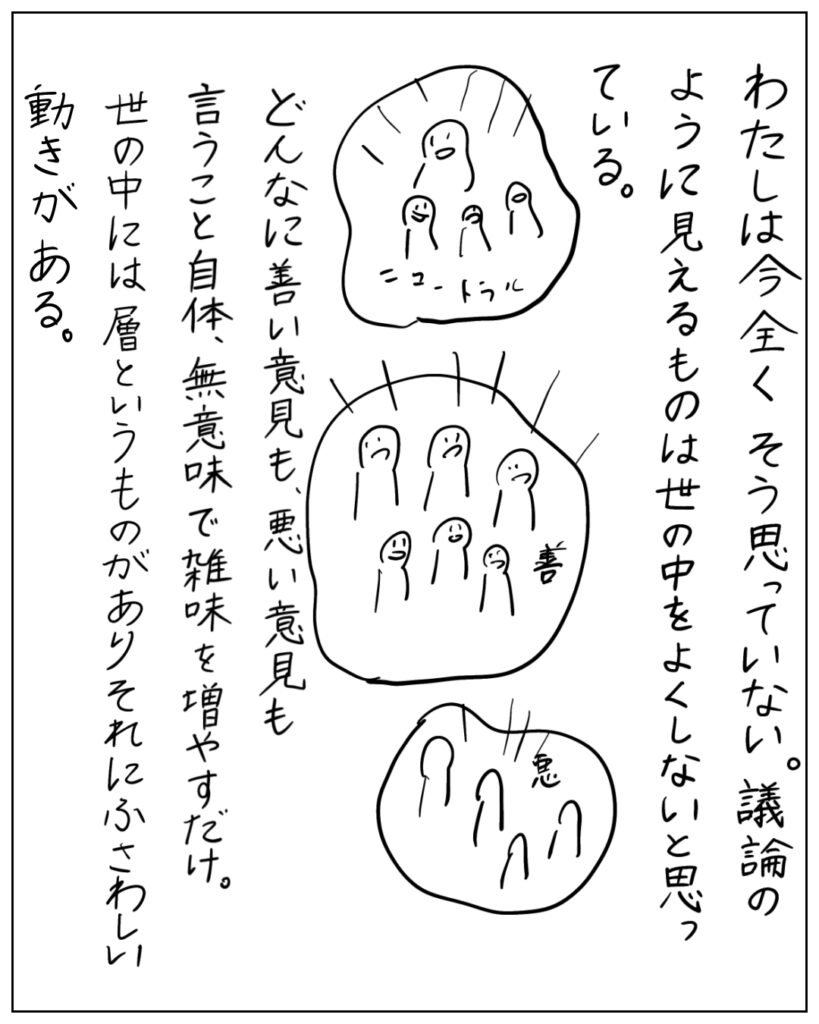 わたしは今全くそう思っていない。議論の
ように見えるものは世の中をよくしないと思っ
ている。
ニュートラル
善
悪
どんなに善い意見も、悪い意見も
言うこと自体、無意味で雑味を増やすだけ。
世の中には層というものがありそれにふさわしい
動きがある。